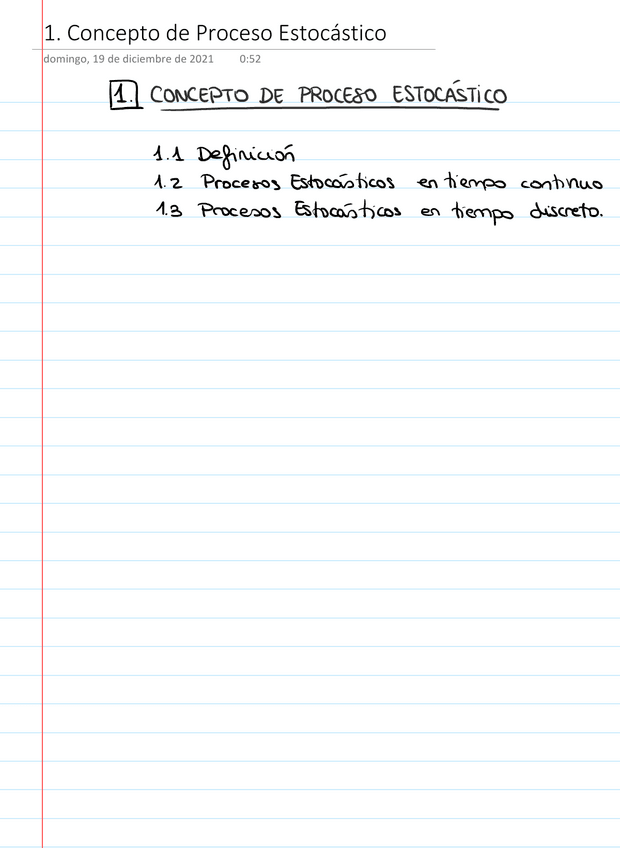 1. Concepto de Proceso Estocástico
domingo, 19 de diciembre de 2021 0:52
1. CONCEPTO DE PROCESO ESTOCÁSTICO
1.1 Definición
1.2 Procesos Estocásticos en tiempo continuo
1.3 Procesos Estocásticos en tiempo discreto.